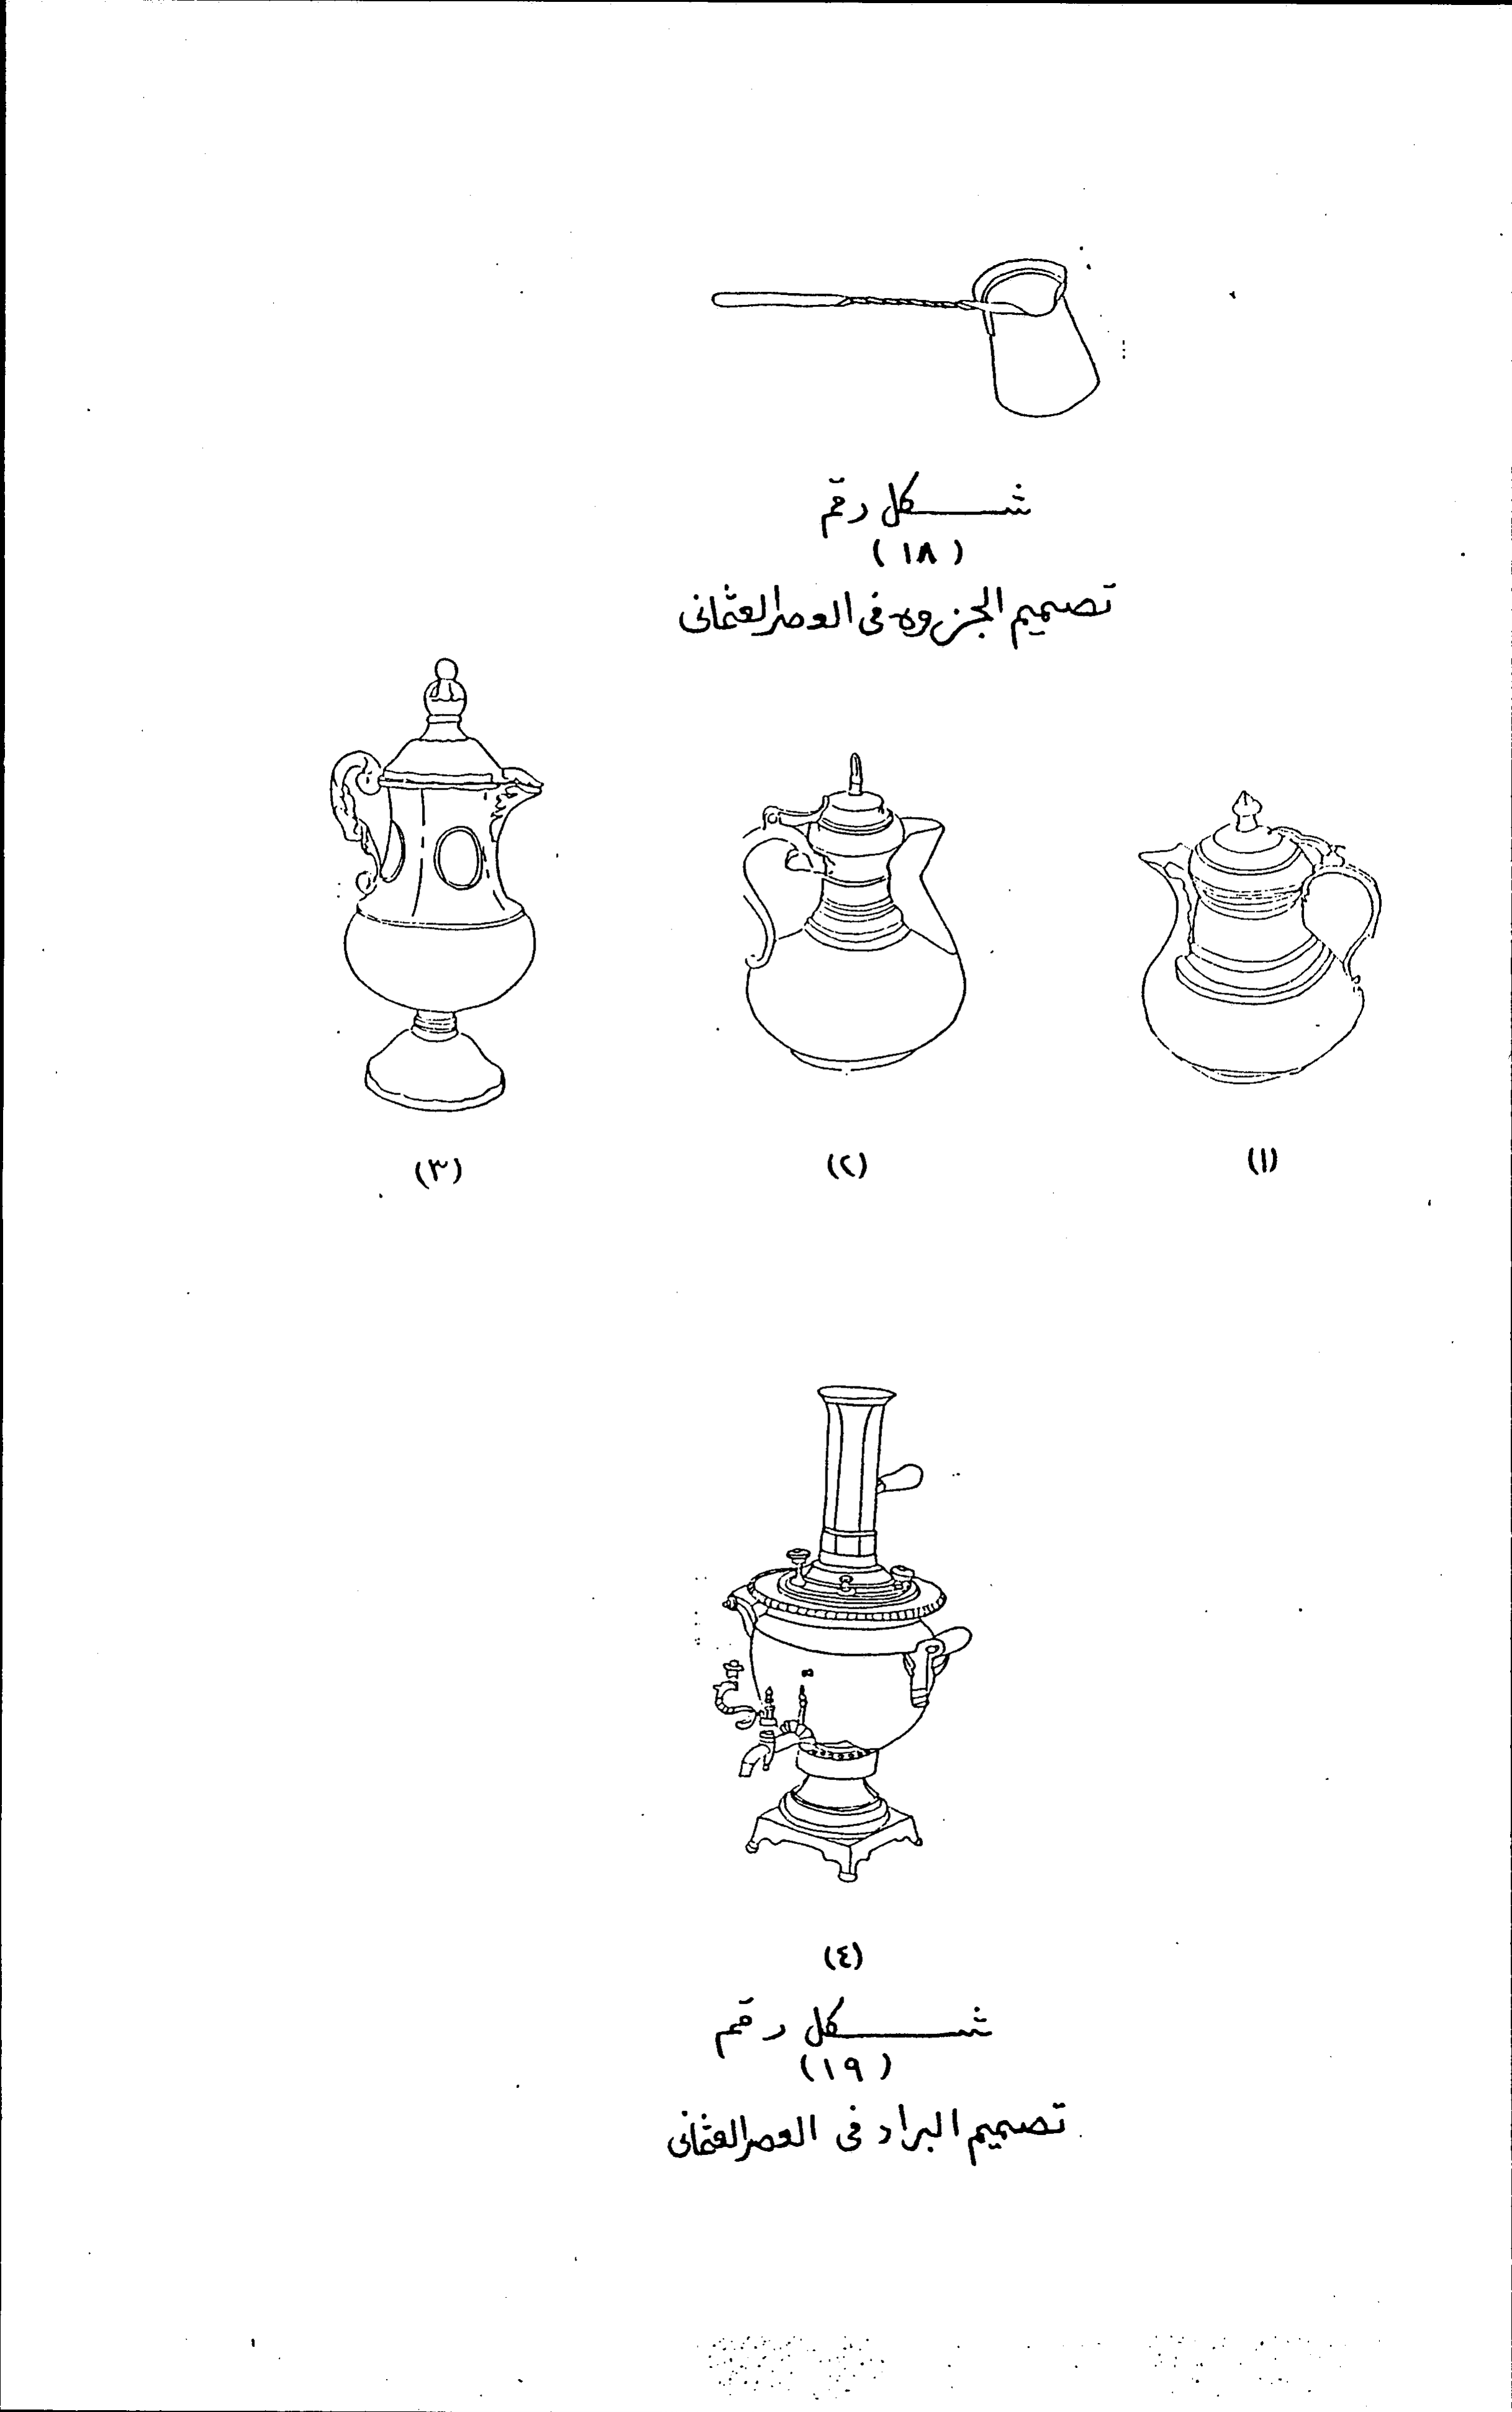 شكل رقم
(١٨)
تصميم الجزوه فى العصر العثمانى
(١)
(٢)
(٣)
(٤)
شكل رقم
(١٩)
تصميم البراد فى العصر العثمانى